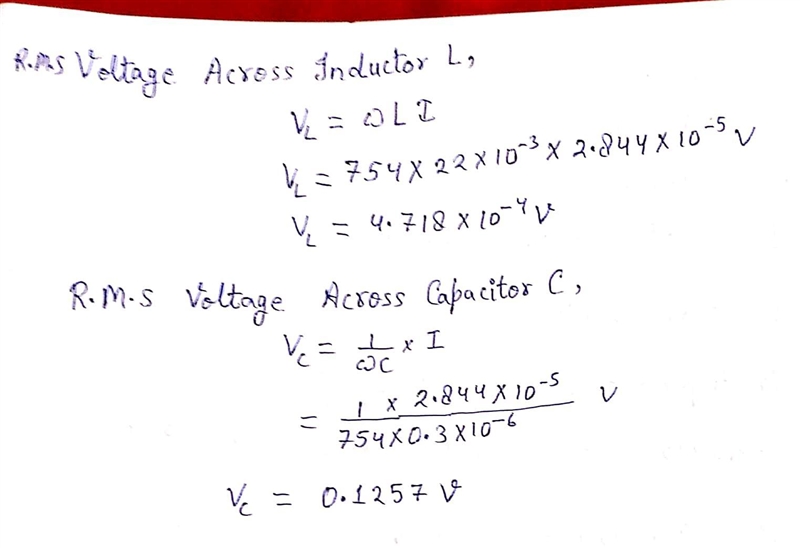 R.M.S Voltage Across Inductor L,
V_L = ωLI
V_L = 754 X 22 X 10^-3 X 2.844 X 10^-5 V
V_L = 4.718 X 10^-4 V
R.M.S Voltage Across Capacitor C,
V_C = 1/ωC x I
= 1 x 2.844 X 10^-5 / 754 X 0.3 X 10^-6 V
V_C = 0.1257 V